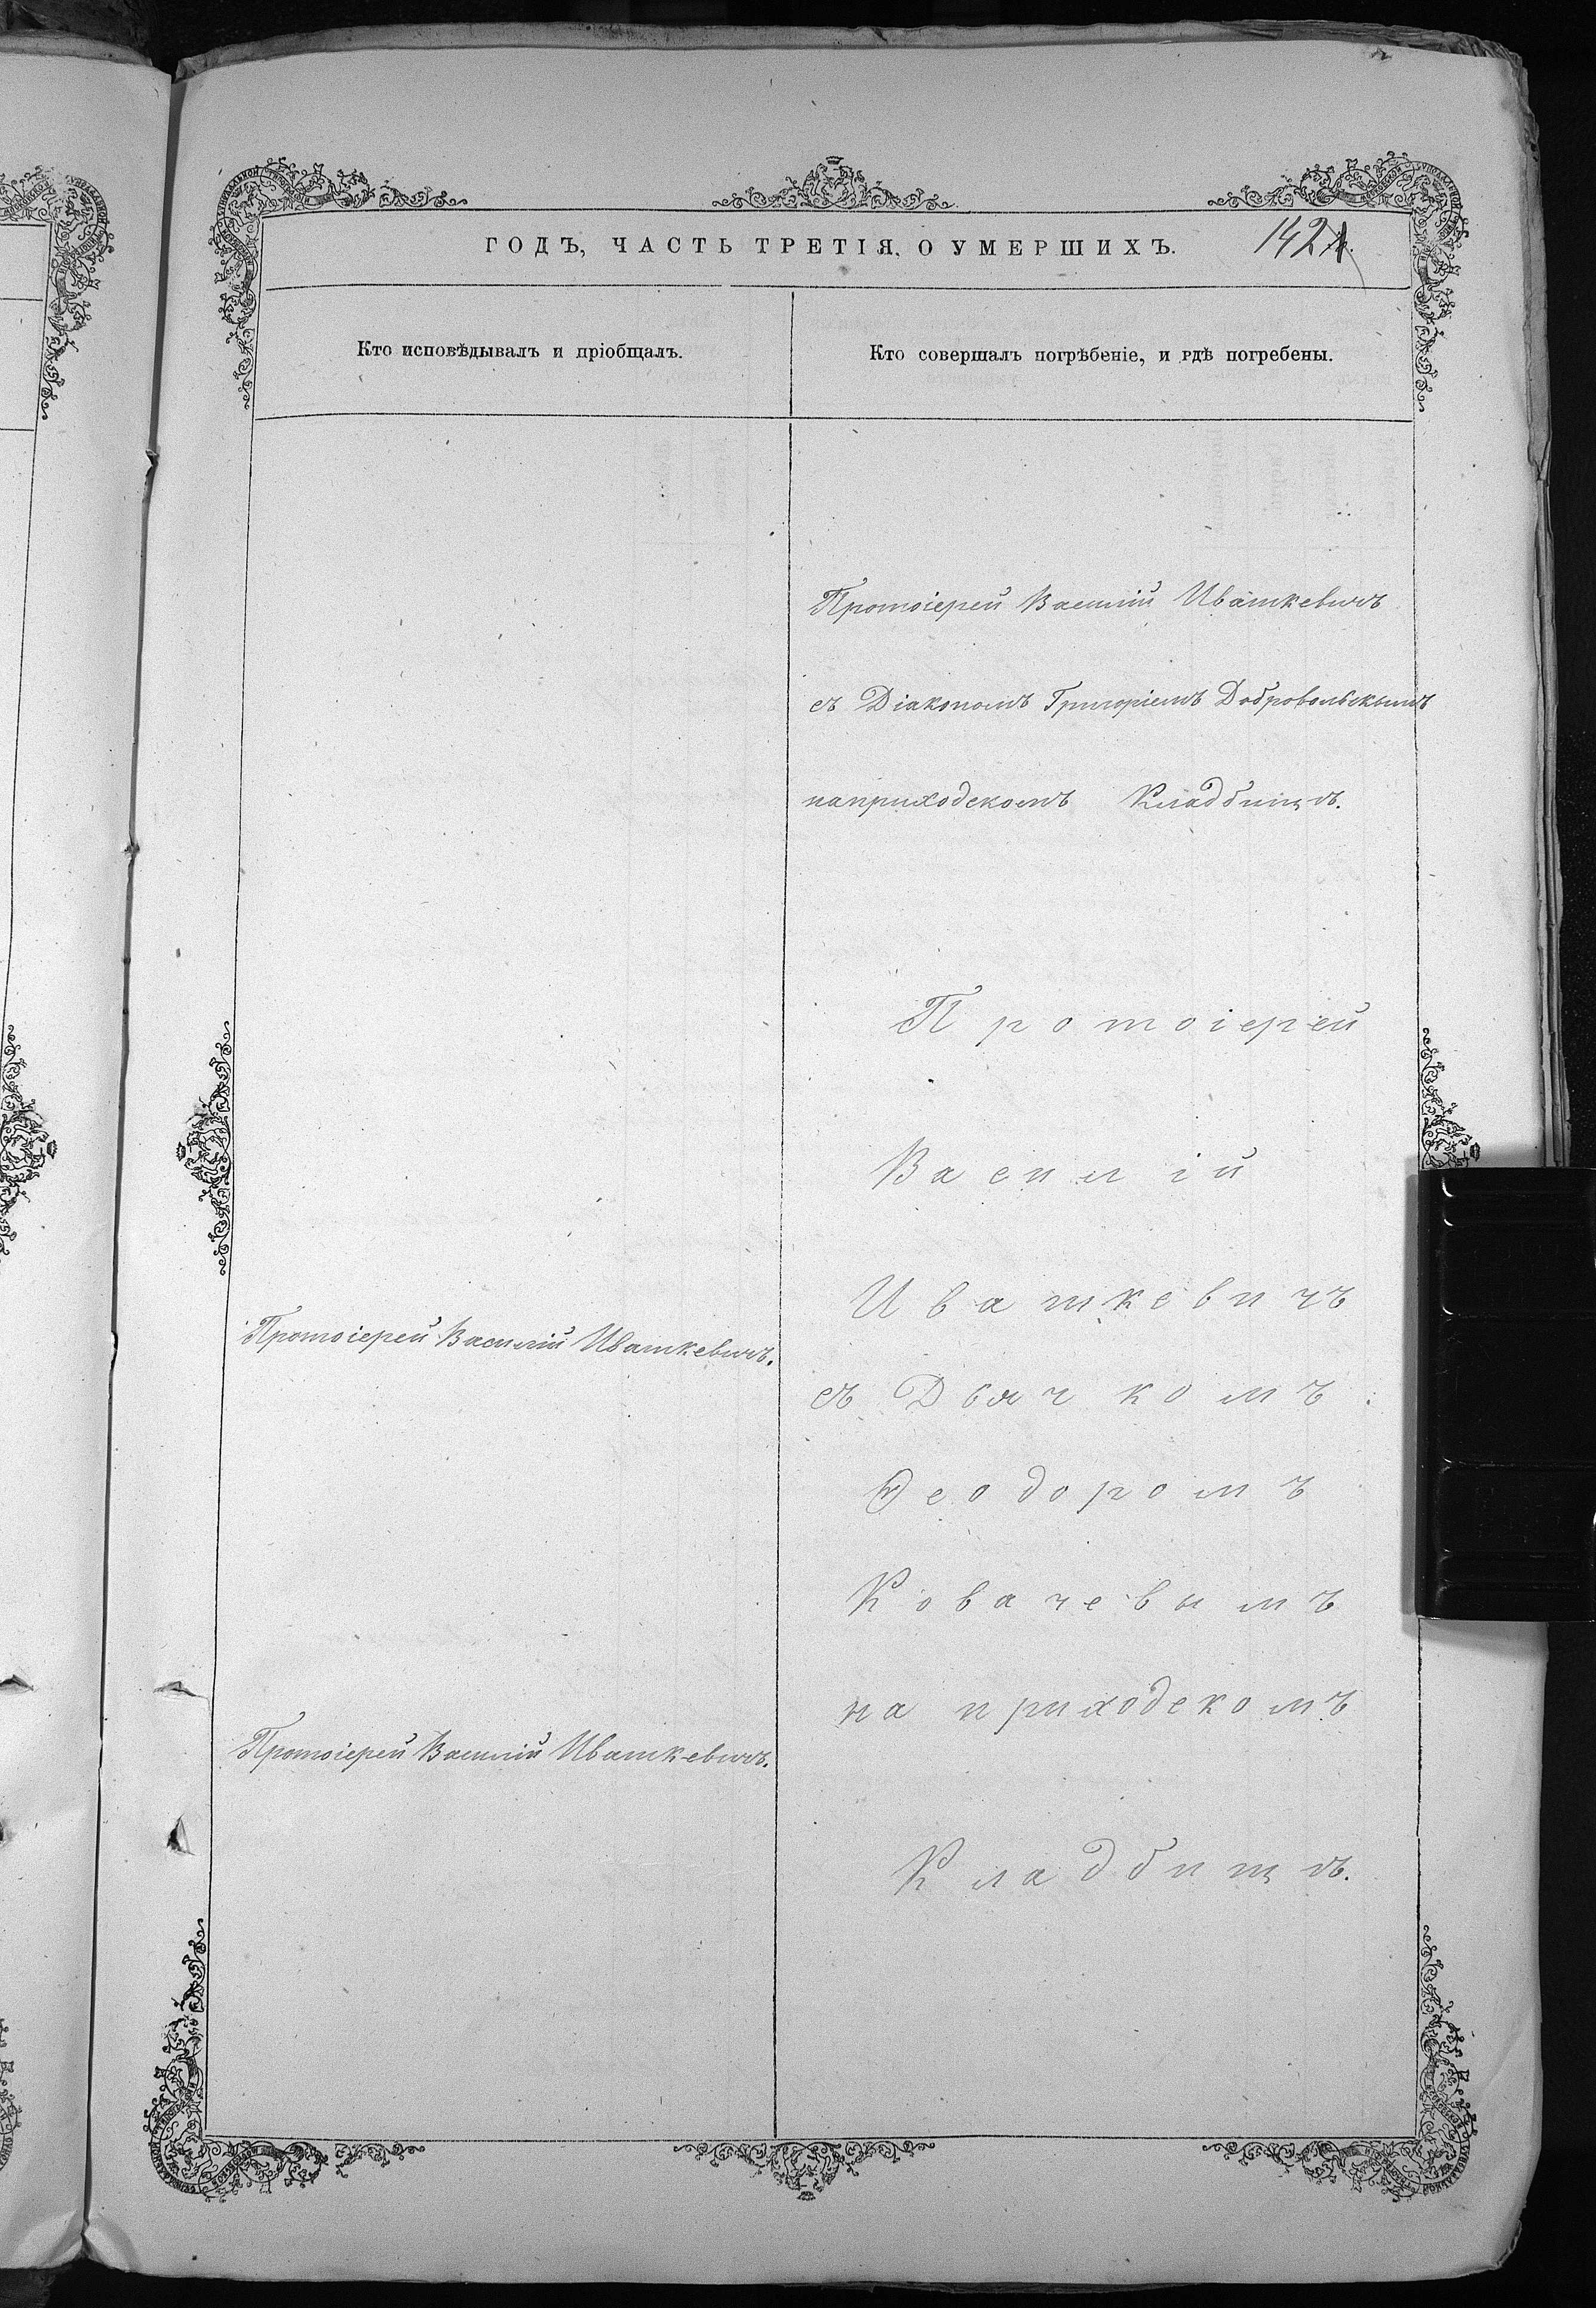 ГОДЪ, ЧАСТЬ ТРЕТІЯ, О УМЕРШИХЪ.
142
Кто исповѣдывалъ и пріобщалъ.
Кто совершалъ погрѣбеніе, и гдѣ погребены.
Протоіерей Василій Ивашкевичъ
съ Діакономъ Григоріемъ Добровольскымъ
на приходскомъ Кладбищѣ.
Протоіерей
Василій
Ивашкевичъ
Протоіерей Василій Ивашкевичъ.
съ Дьячкомъ
Ѳеодоромъ
Ковачевымъ
на приходскомъ
Протоіерей Василій Ивашкевичъ.
Кладбищѣ.